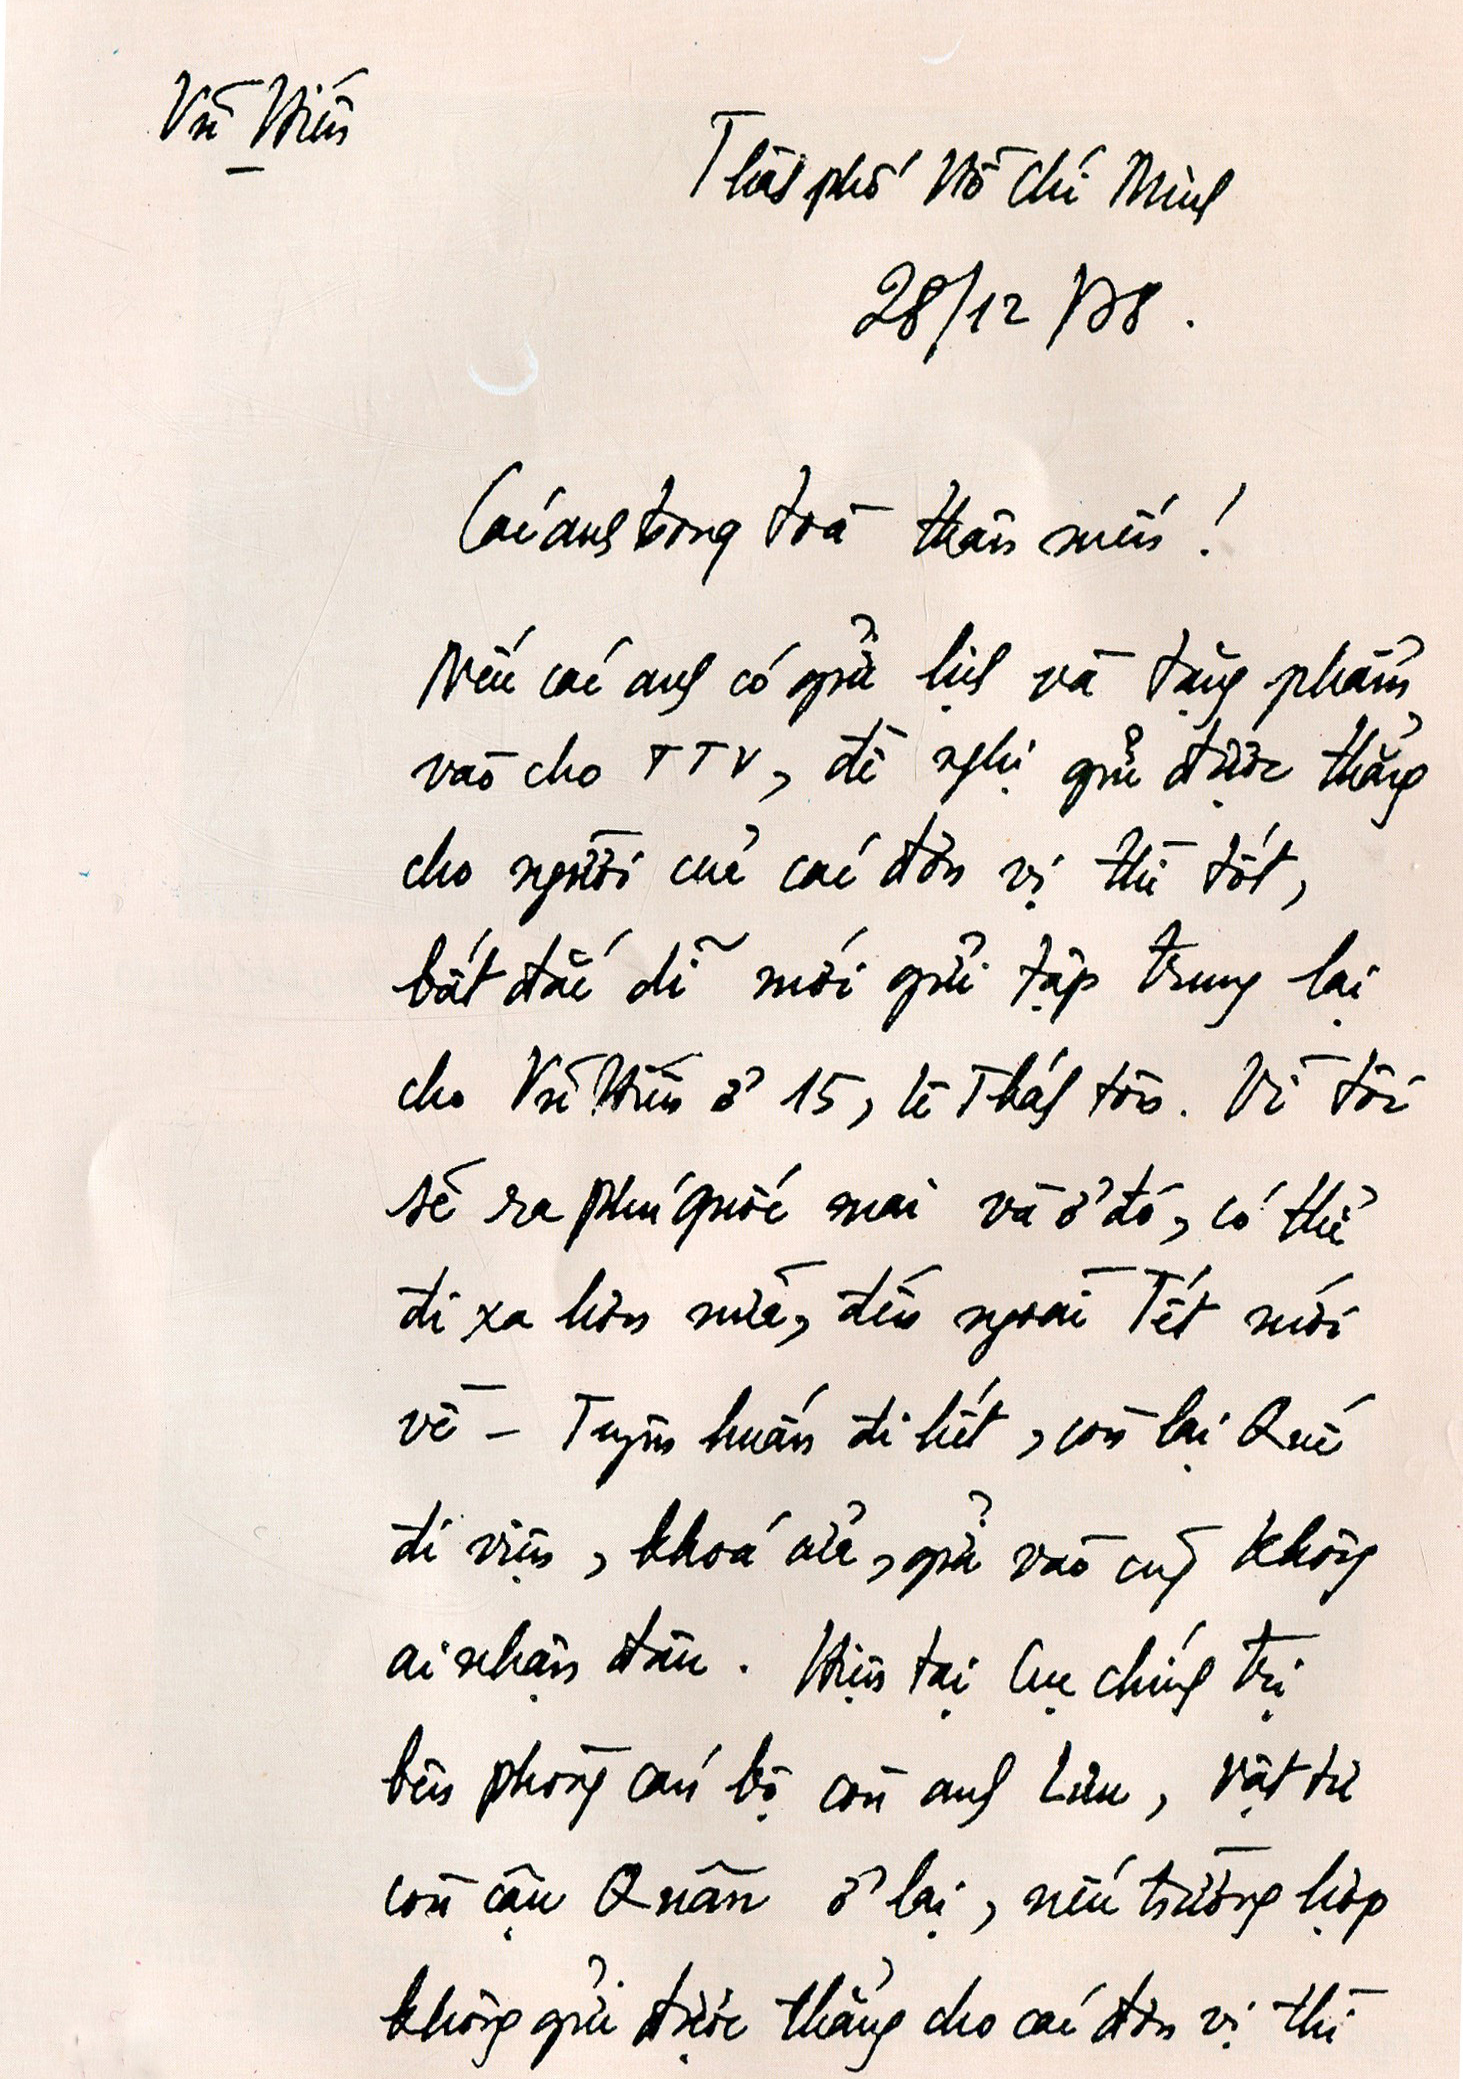 Vũ Hiến
Thành phố Hồ Chí Minh
28/12/78.
Các anh trong toà thân mến!
Nếu các anh có gửi lịch và tặng phẩm
vào cho TTV, đề nghị gửi được thẳng
cho người của các đơn vị thì tốt,
bất đắc dĩ mới gửi tập trung lại
cho Vũ Hiến ở 15, Lê Thánh Tôn. Vì tôi
sẽ ra Phú Quốc mai và ở đó, có thể
đi xa hơn nữa, đến ngoài Tết mới
về - Tuyên huấn đi hết, còn lại Quế
đi viện, khoá cửa, gửi vào cũng không
ai nhận đâu. Hiện tại Cục chính trị
bên phòng cán bộ còn anh Lưu, vật tư
còn cậu Quân ở lại, nếu trường hợp
không gửi được thẳng cho các đơn vị thì